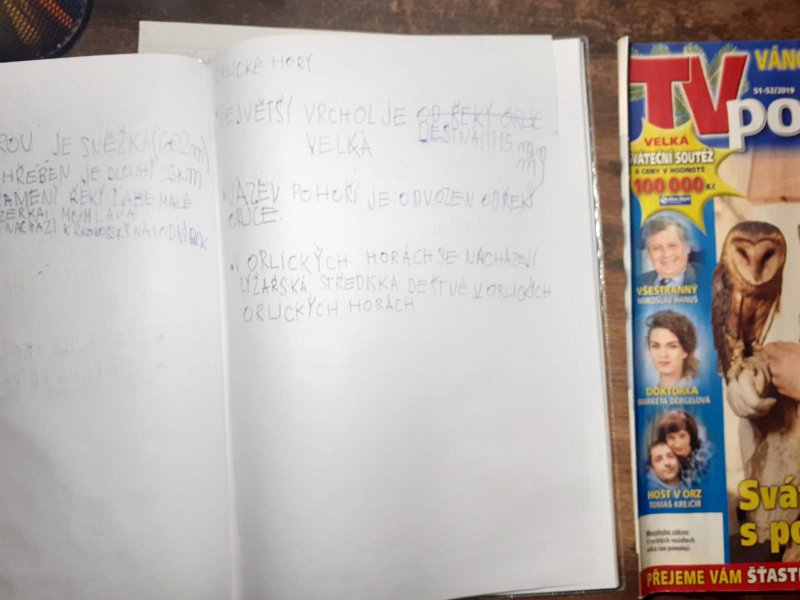 ROU JE SNĚŽKA(1602m)
HŘEBEN JE DLOUHÝ 35km
PRAMENÍ ŘEKY LABE MALÉ
JIZERKA, MUMLAVA
NACHÁZÍ KRKONOŠSKÝ NÁRODNÍ PARK
ORLICKÉ HORY
NEJVĚTŠÍ VRCHOL JE OD ŘEKY ORLIC
VELKÁ DEŠTNÁ(1115 m n m)
NÁZEV POHOŘÍ JE ODVOZEN OD ŘEKY
ORLICE.
V ORLICKÝCH HORÁCH SE NACHÁZEJÍ
LYŽAŘSKÁ STŘEDISKA DEŠTVÉ V ORLICKÝCH
ORLICKÝCH HORÁCH
VÁNO
TV po
51-52/2019
VELKÁ
SVÁTEČNÍ SOUTĚŽ
O CENY V HODNOTĚ
100 000 Kč
VŠESTRANNÝ
MIROSLAV HANUŠ
DOKTORKA
MARKÉTA DĚRGELOVÁ
HOST V ORZ
TOMÁŠ KREJČÍŘ
Murphyho zákon:
Svá
s po
PŘEJEME VÁM ŠŤAST